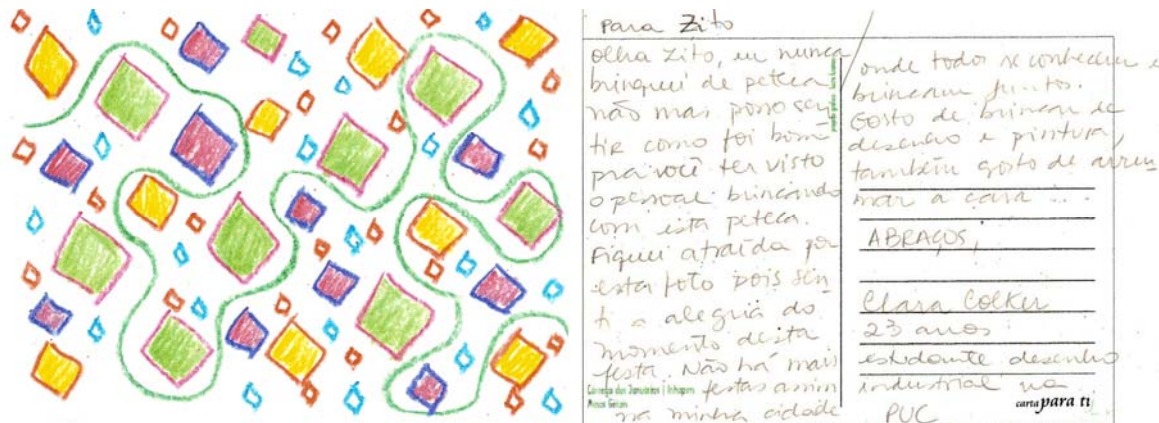 Para Zito
Olha Zito, eu nunca
brinquei de peteca
não mas posso sen
tir como foi bom
pra você ter visto
o pessoal brincando
com esta peteca.
Fiquei atraída por
esta foto pois sen
ti a alegria do
momento desta
festa. Não há mais
festas assim
na minha cidade
Córrego dos Januários | Inhapim
Minas Gerais
onde todos se conhecem e
brincam juntos.
Gosto de brincar de
desenho e pintura,
também gosto de arru
mar a casa ...
ABRAÇOS,
Clara Colker
23 anos
estudante desenho
industrial na
PUC
carta para ti